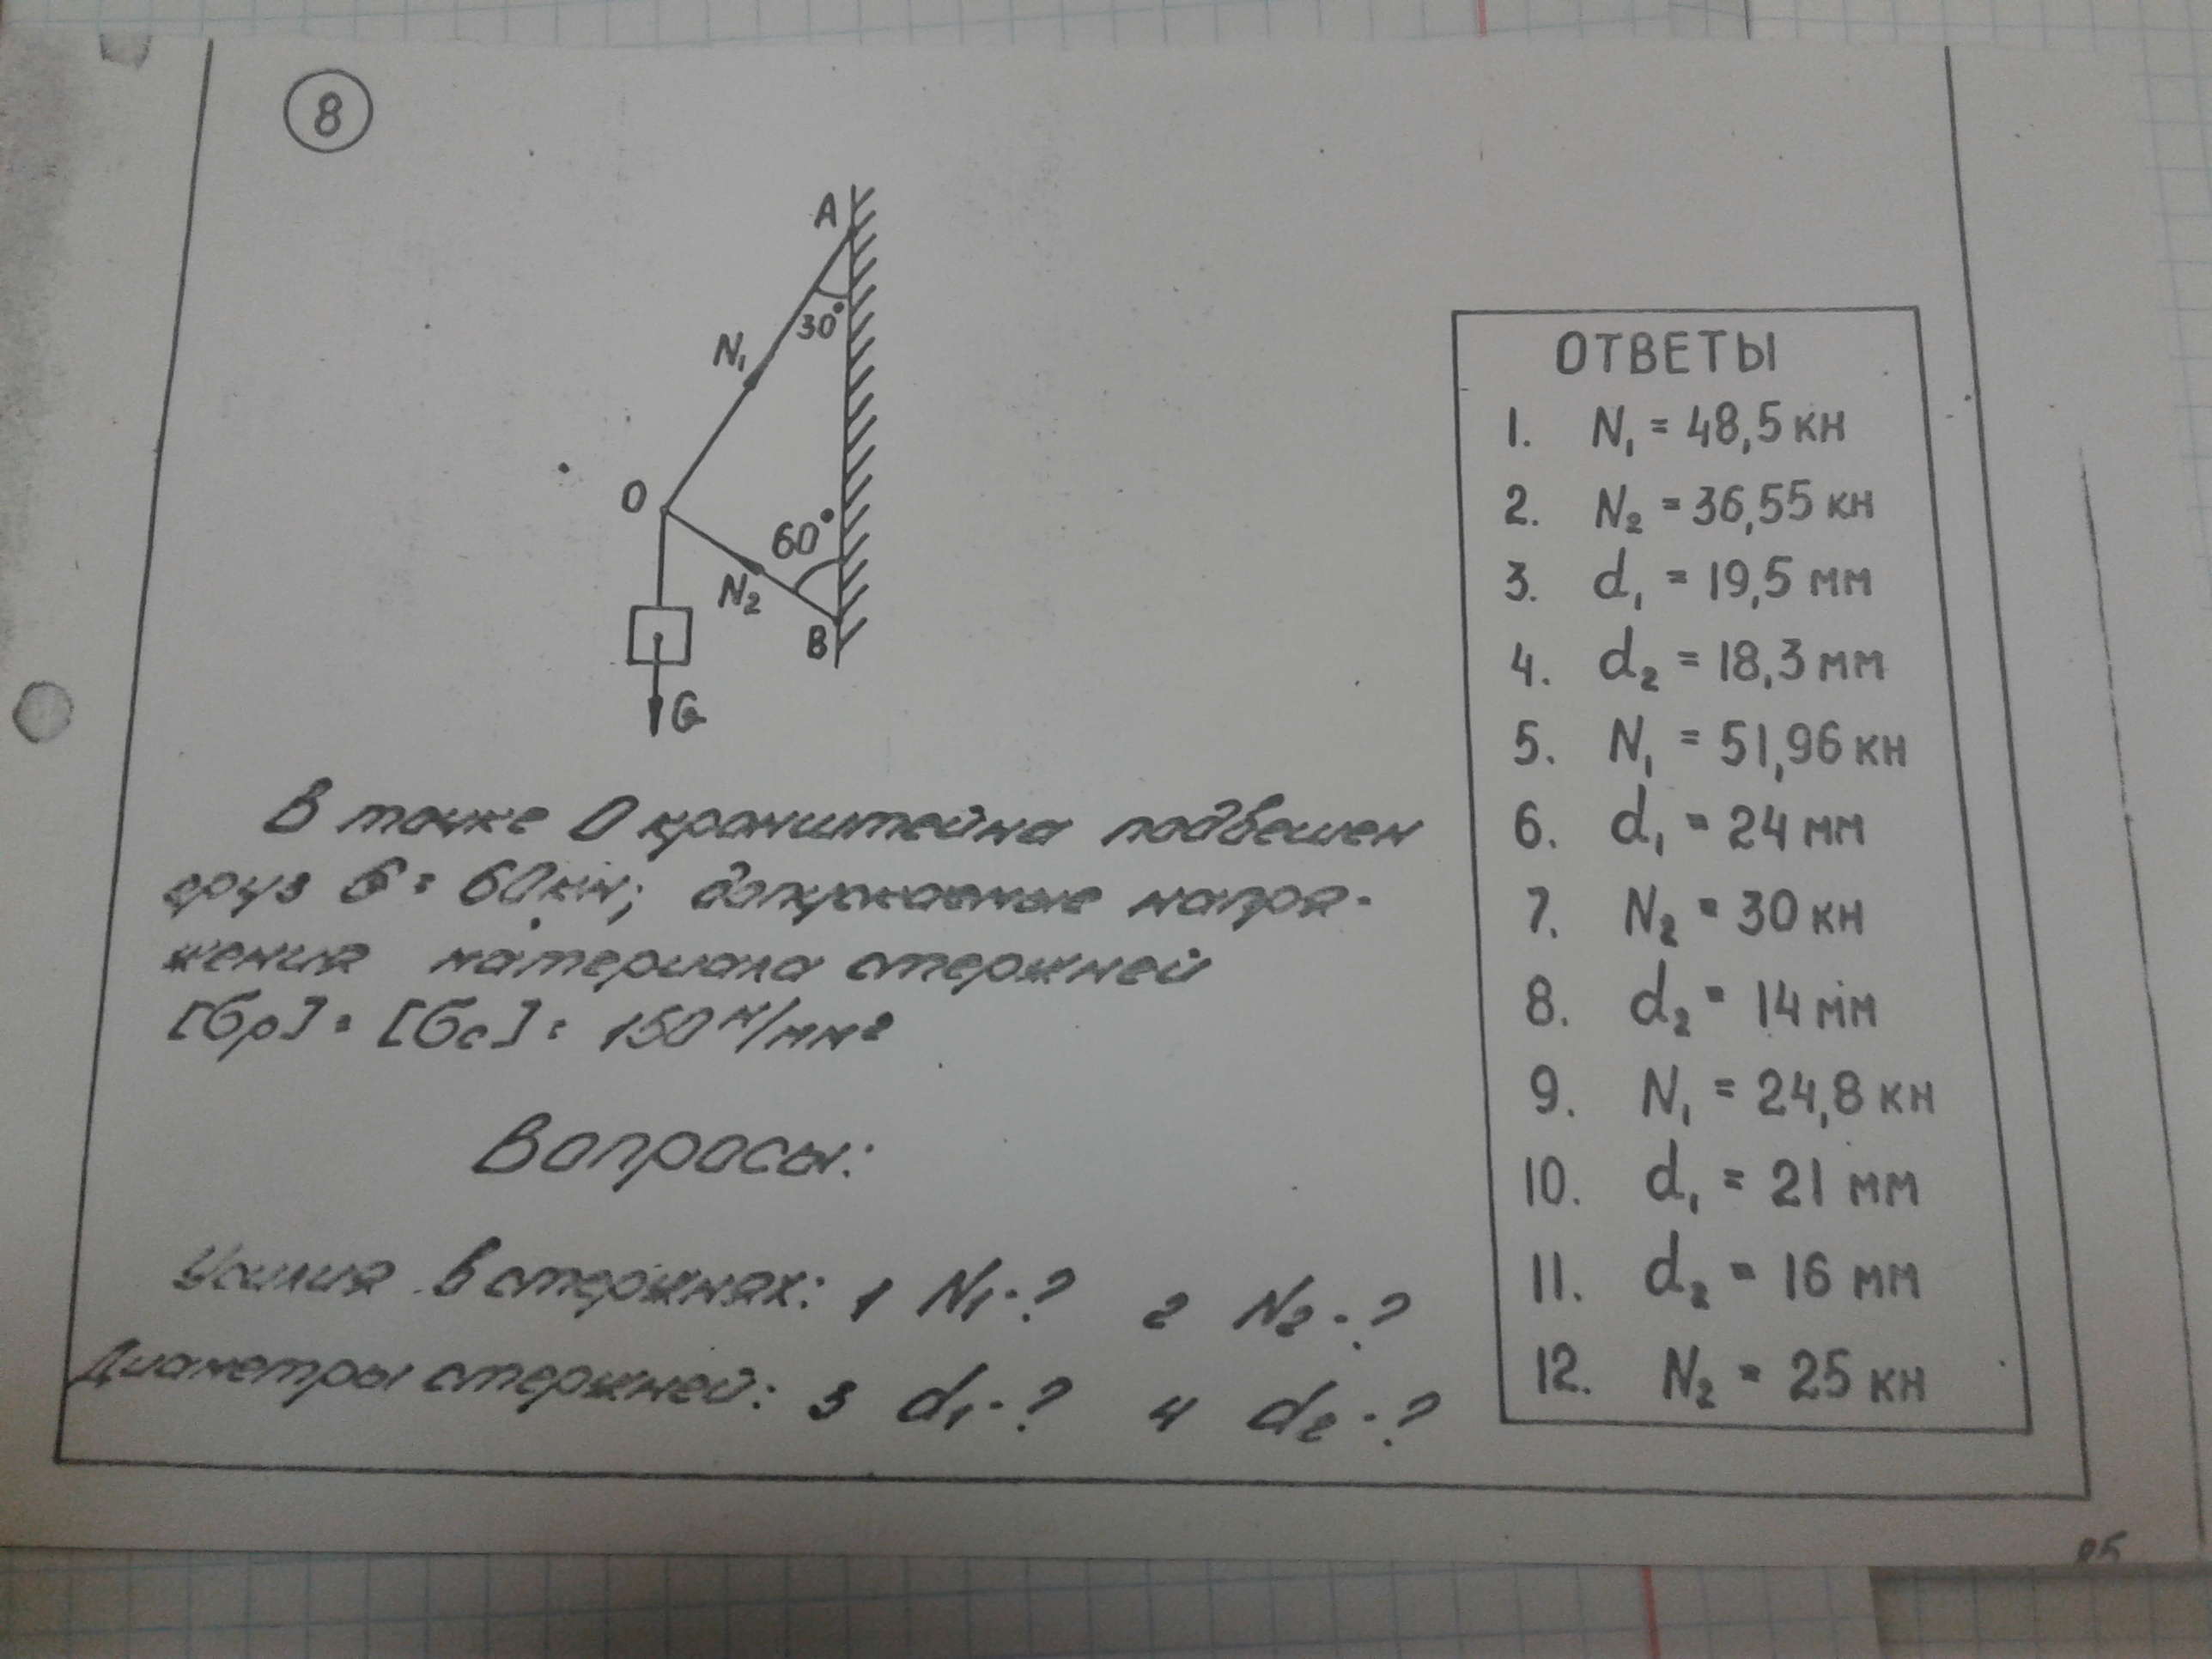 8
A
30°
N₁
O
60°
N₂
B
G
В точке О кронштейна подвешен
груз G = 60 кн; допускаемые напря-
жения материала стержней
[σр] = [σс] = 150 н/мм²
Вопросы:
Усилия в стержнях: 1 N₁-? 2 N₂-?
Диаметры стержней: 3 d₁-? 4 d₂-?
ОТВЕТЫ
1. N₁ = 48,5 кн
2. N₂ = 36,55 кн
3. d₁ = 19,5 мм
4. d₂ = 18,3 мм
5. N₁ = 51,96 кн
6. d₁ = 24 мм
7. N₂ = 30 кн
8. d₂ = 14 мм
9. N₁ = 24,8 кн
10. d₁ = 21 мм
11. d₂ = 16 мм
12. N₂ = 25 кн